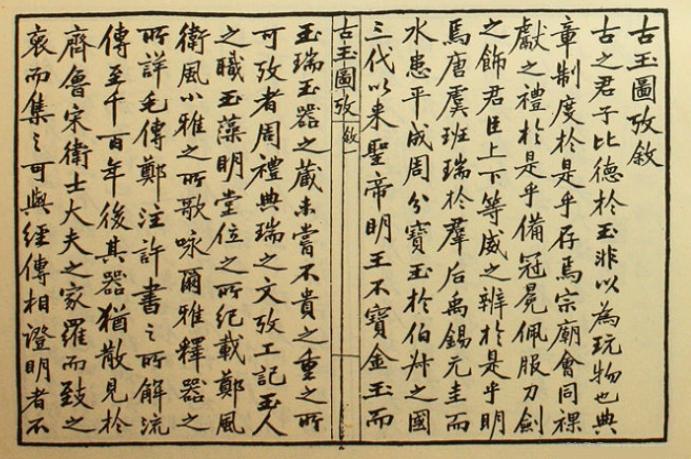 古玉圖攷敘
古之君子比德於玉非以為玩物也典
章制度於是乎存焉宗廟會同祼
獻之禮於是乎備冠冕佩服刀劍
之飾君臣上下等威之辨於是乎明
焉唐虞班瑞於羣后禹錫元圭而
水患平成周分寶玉於伯叔之國
三代以來聖帝明王不寶金玉而
古玉圖攷 敘 一
玉瑞玉器之藏未嘗不貴之重之所
可攷者周禮典瑞之文攷工記玉人
之職玉藻明堂位之所紀載鄭風
衛風小雅之所歌咏爾雅釋器之
所詳毛傳鄭注許書之所解流
傳至千百年後其器猶散見於
齊魯宋衛士大夫之家羅而致之
裒而集之可與經傳相證明者不